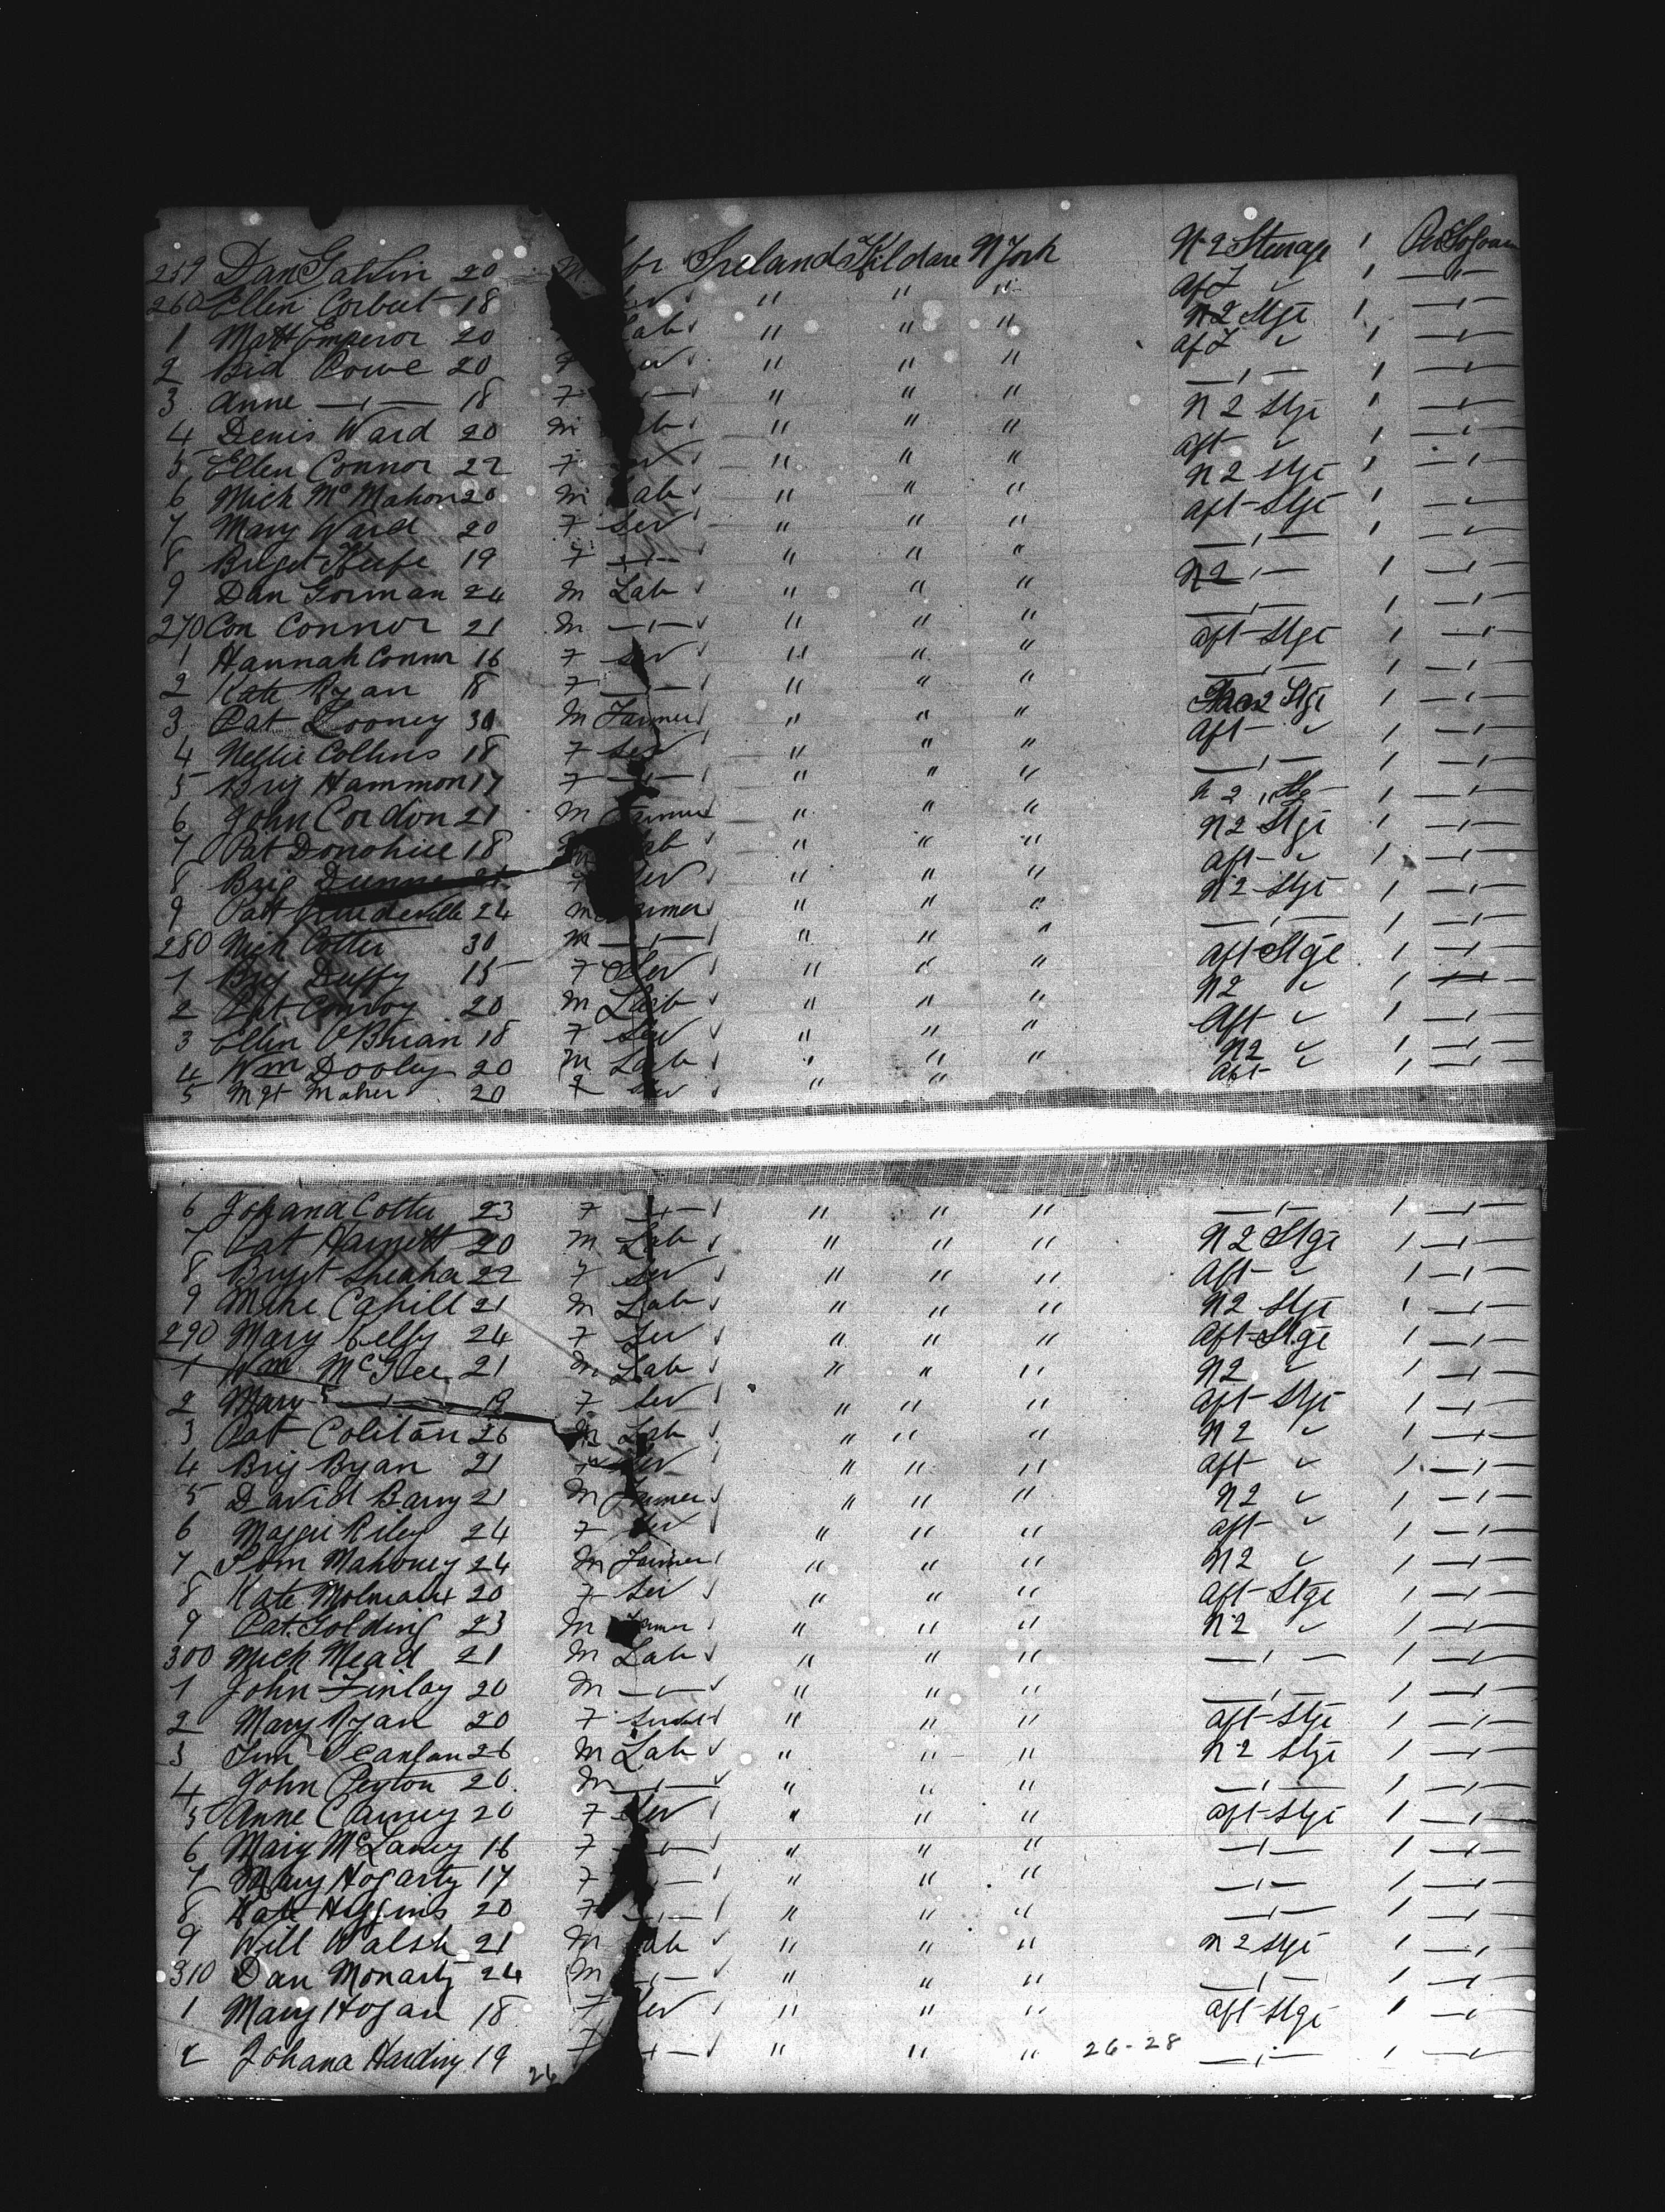 259 Dan Galvin 20 M Ireland Kildare N York N-2 Steerage 1
260 Ellen Corbut 18 " " " Aft " 1 —ı—
1 Matt Emperor 20 Lab " " " N2 Stge 1 —ı—
2 Brd Rowe 20 F " " " Aft " 1 —ı—
3 Anne —ı— 18 F —ı— " " " —ı— 1 —ı—
4 Denis Ward 20 M " " " N 2 Stge 1 —ı—
5 Ellen Connor 22 F " " " Aft " 1 —ı—
6 Mich McMahon 20 M Lab " " " N 2 Stge 1 —ı—
7 Mary Ward 20 F Ser " " " Aft Stge 1 —ı—
8 Briget Keefe 19 F —ı— " " " —ı— 1 —ı—
9 Dan Gorman 24 M Lab " " " N2 —ı— 1 —ı—
270 Con Connor 21 M —ı— " " " —ı— 1 —ı—
1 Hannah Connor 16 F Ser " " " Aft Stge 1 —ı—
2 Kate Ryan 18 F —ı— " " " —ı— 1 —ı—
3 Pat Looney 30 M Farmer " " " 2 Stge 1 —ı—
4 Nellie Collins 18 F Ser " " " Aft " 1 —ı—
5 Brig Hammon 17 F —ı— " " " —ı— 1 —ı—
6 John Cordon 21 M Farmer " " " N 2 Stge 1 —ı—
7 Pat Donohue 18 Lab " " " N2 Stge 1 —ı—
8 Brig Dunne F Ser " " " Aft " 1 —ı—
9 Patt 24 M Farmer " " " N2 Stge 1 —ı—
280 Mich Cotter 30 M —ı— " " " —ı— 1 —ı—
1 Brig Duffy 15 F Ser " " " Aft Stge 1 —ı—
2 Pat Conroy 20 M Lab " " " N2 " 1 —ı—
3 Ellen O'Brian 18 F Ser " " " Aft " 1 —ı—
4 Wm Dooley 20 M Lab " " " N2 " —ı—
5 Mgt Maher 20 F Ser " " Aft " —ı—
6 Johana Cotter 23 F —ı— " " " —ı— 1 —ı—
7 Pat Harnett 20 M Lab " " " N 2 Stge 1 —ı—
8 Briget Sheaha 22 F Ser " " " Aft " 1 —ı—
9 Mike Cahill 21 M Lab " " " N2 Stge 1 —ı—
290 Mary Kelly 24 F Ser " " " Aft Stge 1 —ı—
1 Wm McGee 21 M Lab " " " N2 " 1 —ı—
2 Mary —ı— 19 F Ser " " " Aft Stge 1 —ı—
3 Pat Colitan 26 M Lab " " " N2 " 1 —ı—
4 Brig Ryan 21 F Ser " " " Aft " 1 —ı—
5 David Barry 21 M Farmer " " " N2 " 1 —ı—
6 Maggie Riley 24 F Ser " " " Aft " 1 —ı—
7 Tom Mahoney 24 M Farmer " " " N2 " 1 —ı—
8 Kate Molneaux 20 F Ser " " " Aft Stge 1 —ı—
9 Pat Golding 23 M Farmer " " " N2 " 1 —ı—
300 Mich Mead 21 M Lab " " " —ı— 1 —ı—
1 John Finlay 20 M —ı— " " " —ı— 1 —ı—
2 Mary Ryan 20 F " " " Aft Stge 1 —ı—
3 Tim Scanlan 26 M Lab " " " N2 Stge 1 —ı—
4 John Peyton 20 M —ı— " " " —ı— 1 —ı—
5 Anne Carney 20 F Ser " " " Aft Stge 1 —ı—
6 Mary McLaney 16 F —ı— " " " —ı— 1 —ı—
7 Mary Hogarty 17 F —ı— " " " —ı— 1 —ı—
8 Kate Higgins 20 F —ı— " " " —ı— 1 —ı—
9 Will Walsh 21 M Lab " " " N 2 Stge 1 —ı—
310 Dan Moriarty 24 M —ı— " " " —ı— 1 —ı—
1 Mary Hogan 18 F Ser " " " Aft Stge 1 —ı—
2 Johana Harding 19 F —ı— " " " 26-28 —ı— 1 —ı—
26